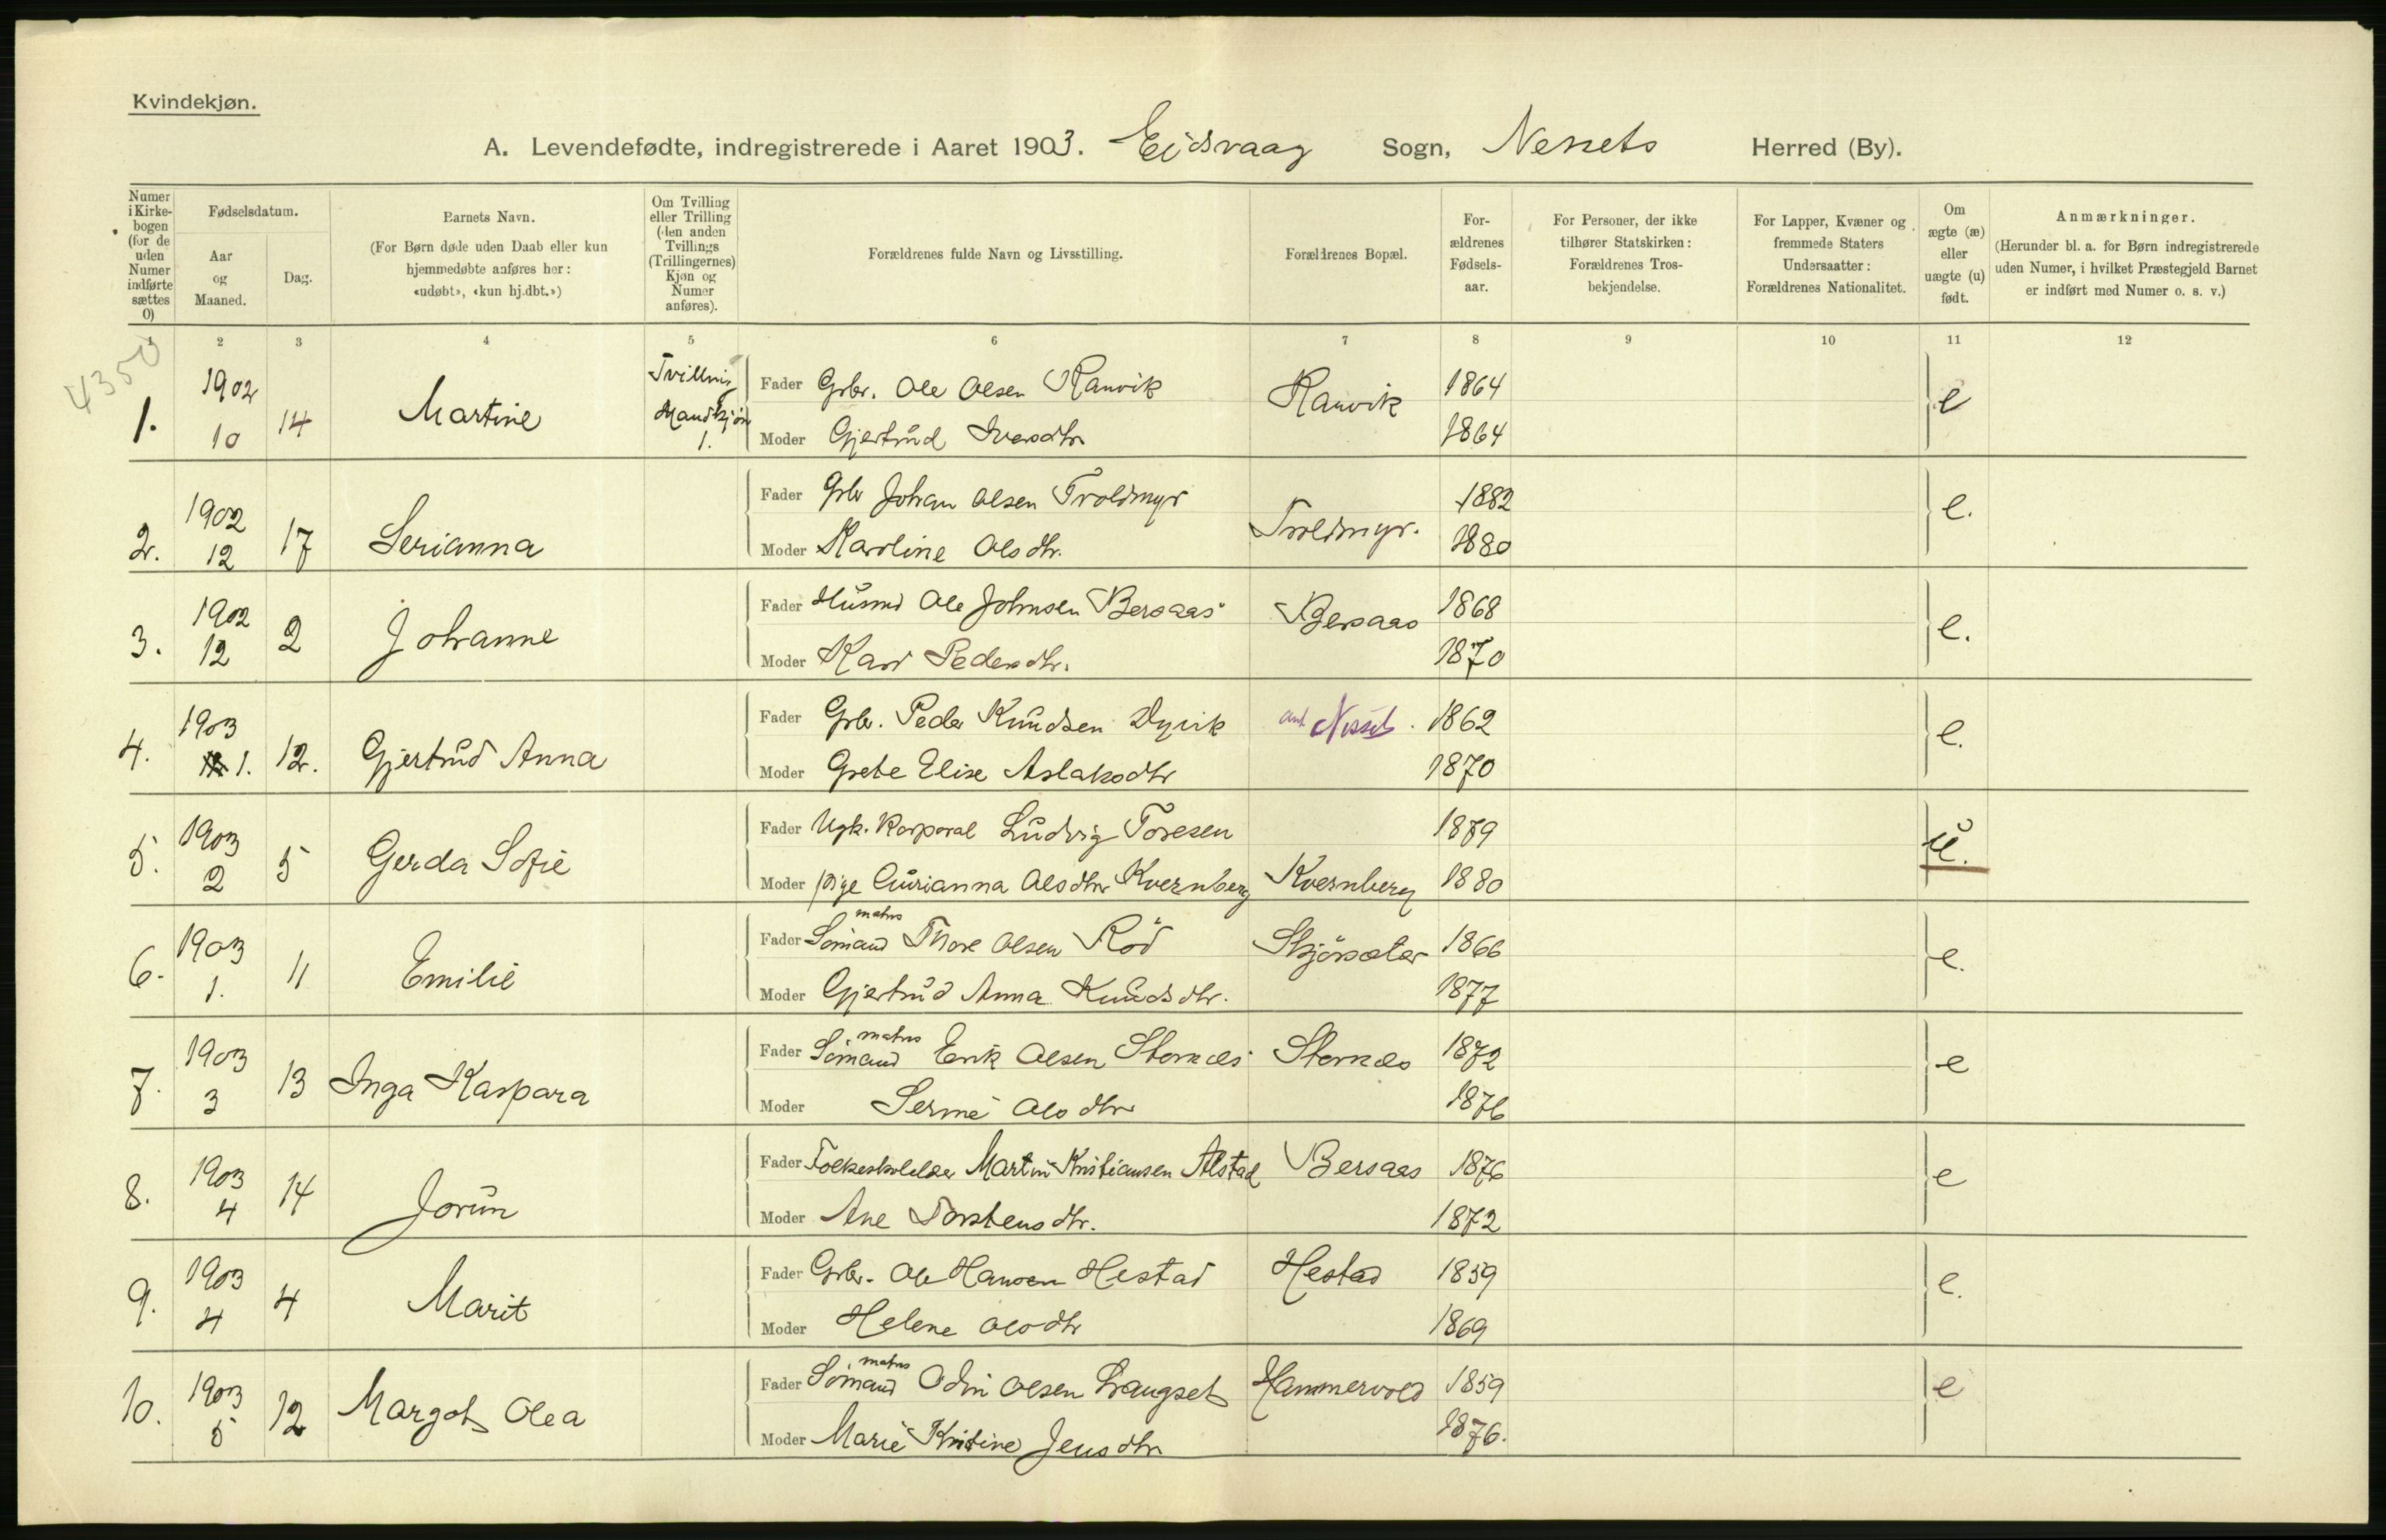 Kvindekjøn.
A. Levendefødte, indregistrerede i Aaret 1903. Eidsvaag Sogn, Nessets Herred (By).
Numer i Kirke-bogen (for de uden Numer indførte sættes 0)
Fødselsdatum.
Aar og Maaned.
Dag.
Barnets Navn.
(For Børn døde uden Daab eller kun hjemmedøbte anføres her: «udøbt», «kun hj.dbt.»)
Om Tvilling eller Trilling (den anden Tvillings (Trillingernes) Kjøn og Numer anføres).
Forældrenes fulde Navn og Livsstilling.
Forældrenes Bopæl.
For-ældrenes Fødsels-aar.
For Personer, der ikke tilhører Statskirken: Forældrenes Tros-bekjendelse.
For Lapper, Kvæner og fremmede Staters Undersaatter: Forældrenes Nationalitet.
Om ægte (æ) eller uægte (u) født.
Anmærkninger.
(Herunder bl. a. for Børn indregistrerede uden Numer, i hvilket Præstegjeld Barnet er indført med Numer o. s. v.)
1 2 3 4 5 6 7 8 9 10 11 12
4350
1. 1902 10 14 Martine Tvilling Mandkjøn 1. Fader Gbr. Ole Olsen Ranvik Ranvik 1864 e
Moder Gjertrud Iversdtr 1864
2. 1902 12 17 Serianna Fader Gbr Johan Olsen Troldmyr Troldmyr. 1882 e.
Moder Karoline Olsdtr. 1880
3. 1902 12 2 Johanne Fader Husmd Ole Johnsen Bersaas Bersaas 1868 e.
Moder Kari Pedersdtr. 1870
4. 1903 1. 12. Gjertrud Anna Fader Gbr. Peder Knudsen Dyvik Nesset. 1862 e.
Moder Grete Elise Aslaksdtr 1870
5. 1903 2 5 Gerda Sofie Fader Ugk. Korporal Ludvig Toresen 1879 u.
Moder pige Gurianna Olsdtr Kvernberg Kvernberg 1880
6. 1903 1. 11 Emilie Fader Sømand matros Thore Olsen Rød Skjørsæter 1866 e.
Moder Gjertrud Anna Knudsdtr. 1877
7. 1903 3 13 Inga Kaspara Fader Sømand matros Erik Olsen Stornæs Stornæs 1872 e
Moder Serine Olsdtr 1876
8. 1903 4 14 Jorun Fader Martin Kristiansen Alstad Bersaas 1876 e
Moder Ane Torstensdtr. 1872
9. 1903 4 4 Marit Fader Gbr. Ole Hansen Hestad Hestad 1859 e.
Moder Helene Olsdtr 1869
10. 1903 5 12 Margot Olea Fader Sømand matros Odin Olsen Langset Hammervold 1859 e
Moder Marie Kristine Jensdtr 1876.